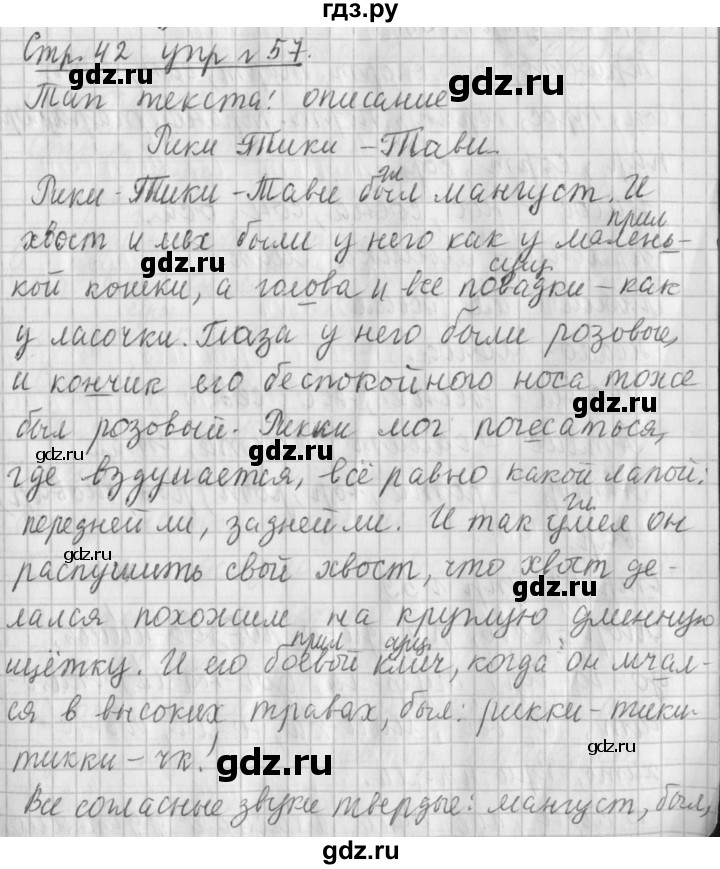 гдз.ру
Стр. 42 упр № 57.
gdz.ru
gdz.ru
Тип текста: описание
Рики Тики - Тави.
Рики - Тики - Тави был мангуст. И
гл
прил
хвост и мех были у него как у малень-
gdz.ru
сущ
кой кошки, а голова и все повадки - как
у ласочки. Глаза у него были розовые,
и кончик его беспокойного носа тоже
gdz.ru
был розовый. Рикки мог почесаться,
gdz.ru
где вздумается, всё равно какой лапой:
гл.
передней ли, задней ли. И так умел он
gdz.ru
распушить свой хвост, что хвост де-
gdz.ru
лался похожим на круглую длинную
прил сущ
щётку. И его боевой клич, когда он мчал-
gdz.ru
ся в высоких травах, был: рикки - тики
gdz.ru
тикки - чк!
gdz.ru
Все согласные звуки твердые: мангуст, был,
gdz.ru